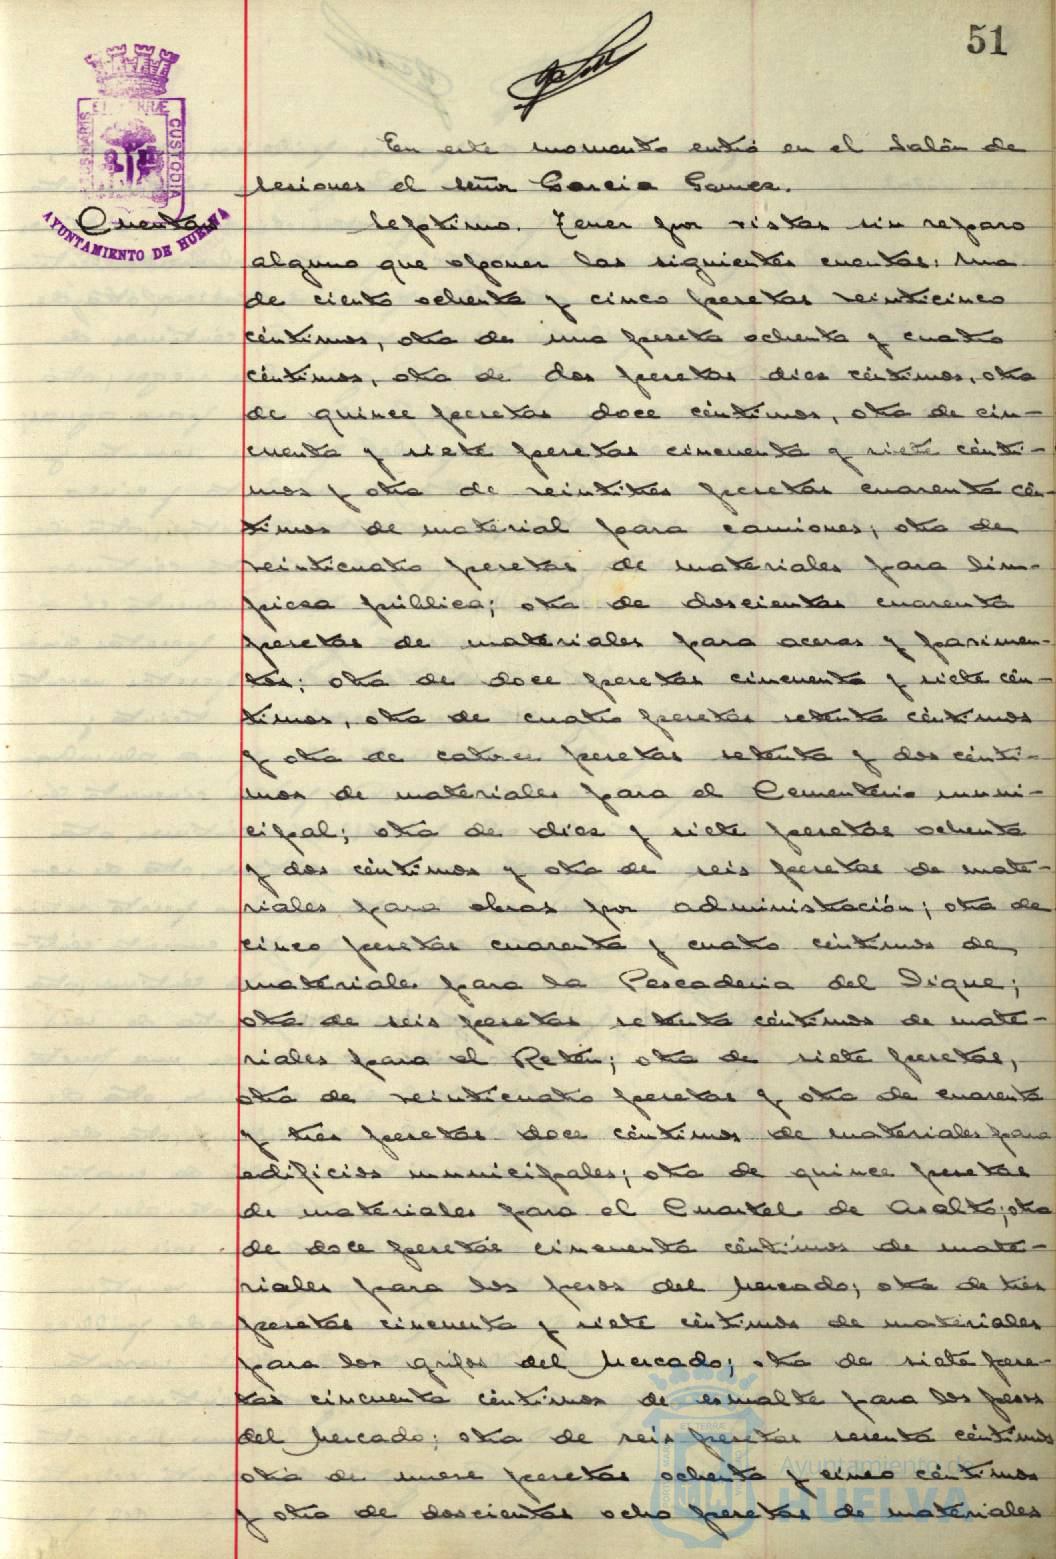 51
En este momento entró en el Salón de
sesiones el señor Garcia Gomez.
Cuentas
Septimo. Tener por vistas sin reparo
alguno que oponer las siguientes cuentas: una
de ciento ochenta y cinco pesetas veinticinco
céntimos, otra de una peseta ochenta y cuatro
céntimos, otra de dos pesetas diez céntimos, otra
de quince pesetas doce céntimos, otra de cin-
cuenta y siete pesetas cincuenta y siete cénti-
mos y otra de veintitres pesetas cuarenta cén-
timos de material para camiones; otra de
veinticuatro pesetas de materiales para lim-
pieza pública; otra de doscientas cuarenta
pesetas de materiales para aceras y pavimen-
tos; otra de doce pesetas cincuenta y siete cén-
timos, otra de cuatro pesetas setenta céntimos
y otra de catorce pesetas setenta y dos cénti-
mos de materiales para el Cementerio muni-
cipal; otra de diez y siete pesetas ochenta
y dos céntimos y otra de seis pesetas de mate-
riales para obras por administración; otra de
cinco pesetas cuarenta y cuatro céntimos de
materiales para la Pescaderia del Dique;
otra de seis pesetas setenta céntimos de mate-
riales para el Retén; otra de siete pesetas,
otra de veinticuatro pesetas y otra de cuarenta
y tres pesetas doce céntimos de materiales para
edificios municipales; otra de quince pesetas
de materiales para el Cuartel de Asalto; otra
de doce pesetas cincuenta céntimos de mate-
riales para los pesos del Mercado; otra de tres
pesetas cincuenta y siete céntimos de materiales
para los grifos del Mercado; otra de siete pese-
tas cincuenta céntimos de esmalte para los pesos
del Mercado; otra de seis pesetas sesenta céntimos
otra de nueve pesetas ochenta y cinco céntimos
y otra de doscientas ocho pesetas de materiales
CUSTODIA
AYUNTAMIENTO DE HUELVA
Ayuntamiento de
HUELVA